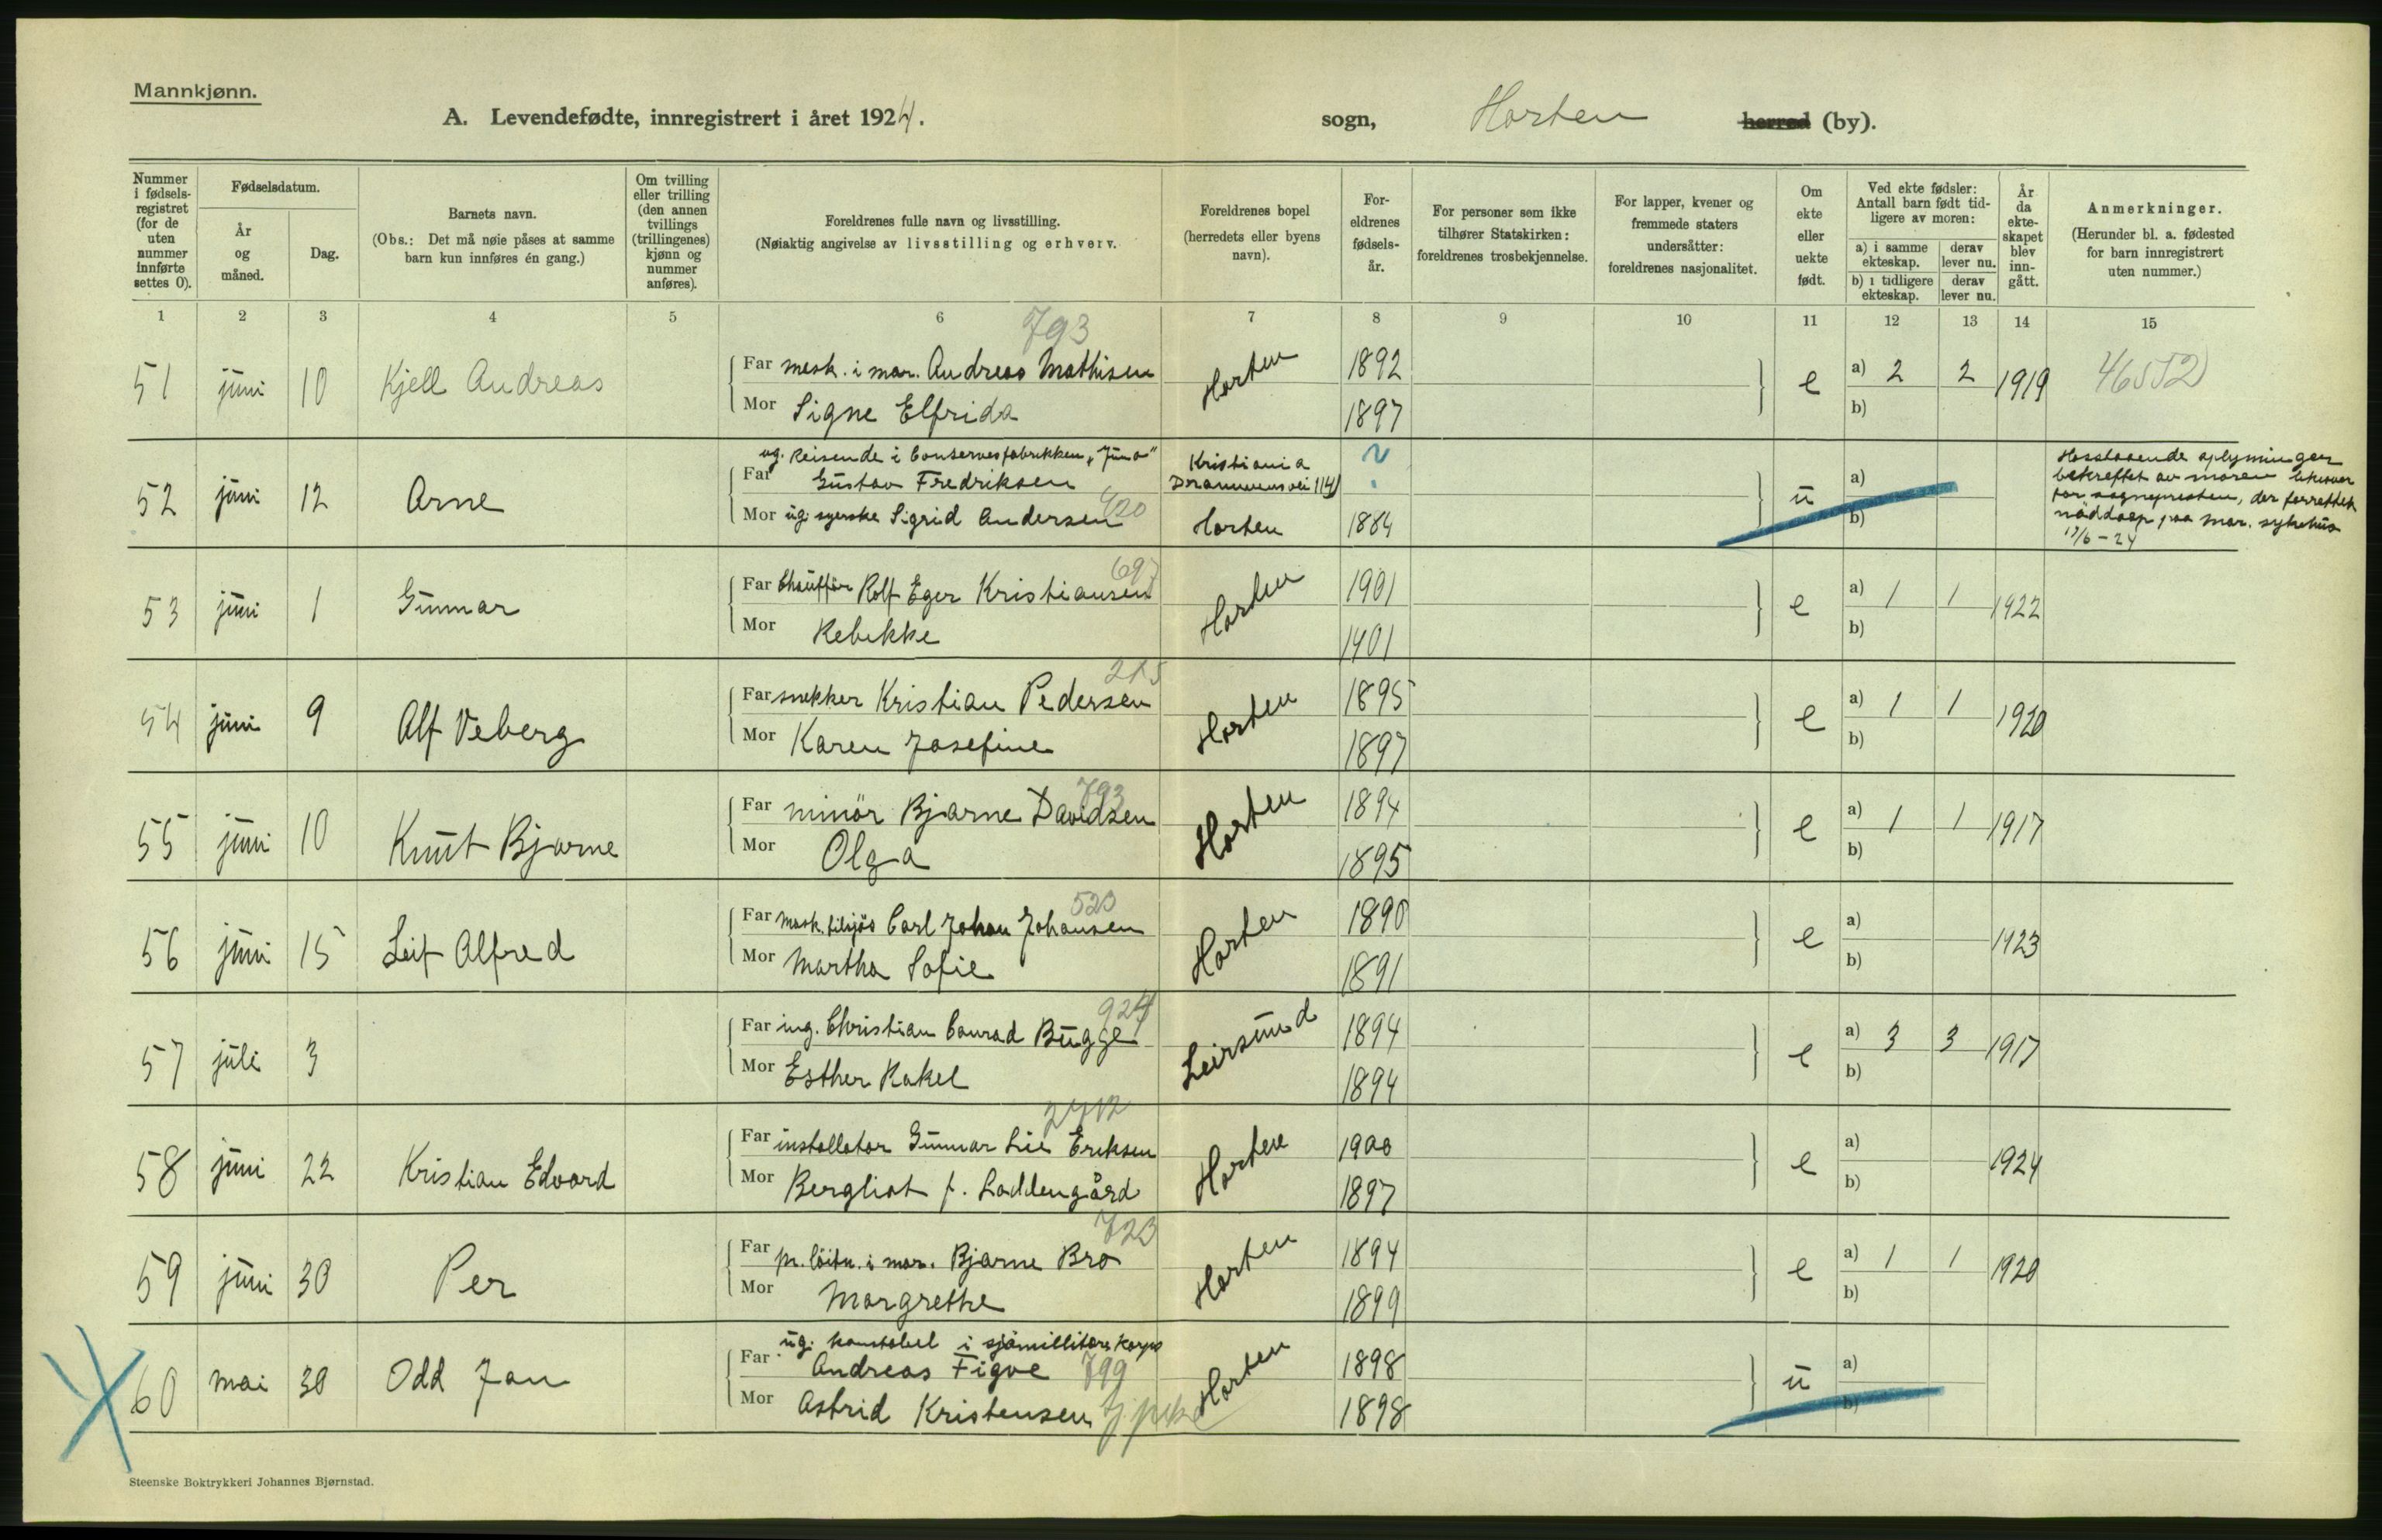 Mannkjønn.
A. Levendefødte, innregistrert i året 1924.
sogn, Horten herred (by).
Nummer i fødselsregistret (for de uten nummer innførte settes 0).
Fødselsdatum.
År og måned.
Dag.
Barnets navn.
(Obs.: Det må nøie påses at samme barn kun innføres én gang.)
Om tvilling eller trilling (den annen tvillings (trillingenes) kjønn og nummer anføres).
Foreldrenes fulle navn og livsstilling.
(Nøiaktig angivelse av livsstilling og erhverv.
Foreldrenes bopel (herredets eller byens navn).
Foreldrenes fødselsår.
For personer som ikke tilhører Statskirken: foreldrenes trosbekjennelse.
For lapper, kvener og fremmede staters undersåtter: foreldrenes nasjonalitet.
Om ekte eller uekte født.
Ved ekte fødsler: Antall barn født tidligere av moren:
a) i samme ekteskap. derav lever nu.
b) i tidligere ekteskap. derav lever nu.
År da ekteskapet blev inngått.
Anmerkninger.
(Herunder bl. a. fødested for barn innregistrert uten nummer.)
1 2 3 4 5 6 7 8 9 10 11 12 13 14 15
793
51 juni 10 Kjell Andreas Far mask. i mar. Andreas Mathisen Horten 1892 e a) 2 2 1919 46552
Mor Signe Elfrida 1897 b)
ug. Reisende i Conservesfabrikken "Juno" Kristiania ?
52 juni 12 Arne Far Gustav Fredriksen Drammensvei 114 u a)
Mor ug. syerske Sigrid Andersen 420 Horten 1884 b)
Hosstaaende oplysninger
bekreftet av moren likeover
for sognepresten, der forrettet
nøddaap paa mar. sykehus
17/6-24
697
53 juni 1 Gunnar Far Chauffør Rolf Eger Kristiansen Horten 1901 e a) 1 1 1922
Mor Rebekke 1901 b)
215
54 juni 9 Alf Veberg Far snekker Kristian Pedersen Horten 1895 e a) 1 1 1920
Mor Karen Josefine 1897 b)
793
55 juni 10 Knut Bjarne Far minör Bjarne Davidsen Horten 1894 e a) 1 1 1917
Mor Olga 1895 b)
520
56 juni 15 Leif Alfred Far mask. tilsjøs Carl Johan Johansen Horten 1890 e a) 1923
Mor Martha Sofie 1891 b)
924
57 juli 3 Far ing. Christian Conrad Bugge Leirsund 1894 e a) 3 3 1917
Mor Esther Rakel 1894 b)
58 juni 22 Kristian Edvard Far installatør Gunnar Lie Eriksen Horten 1900 e a) 1924
Mor Bergliot f. Laddengård 1897 b)
723
59 juni 30 Per Far pr. löitn. i mar. Bjarne Bro Horten 1894 e a) 1 1 1920
Mor Margrethe 1899 b)
ug. konstabel i sjømillitære korps
60 mai 30 Odd Jan Far Andreas Figve 799 Horten 1898 u a)
Mor Astrid Kristensen tj.pike 1898 b)
Steenske Boktrykkeri Johannes Bjørnstad.